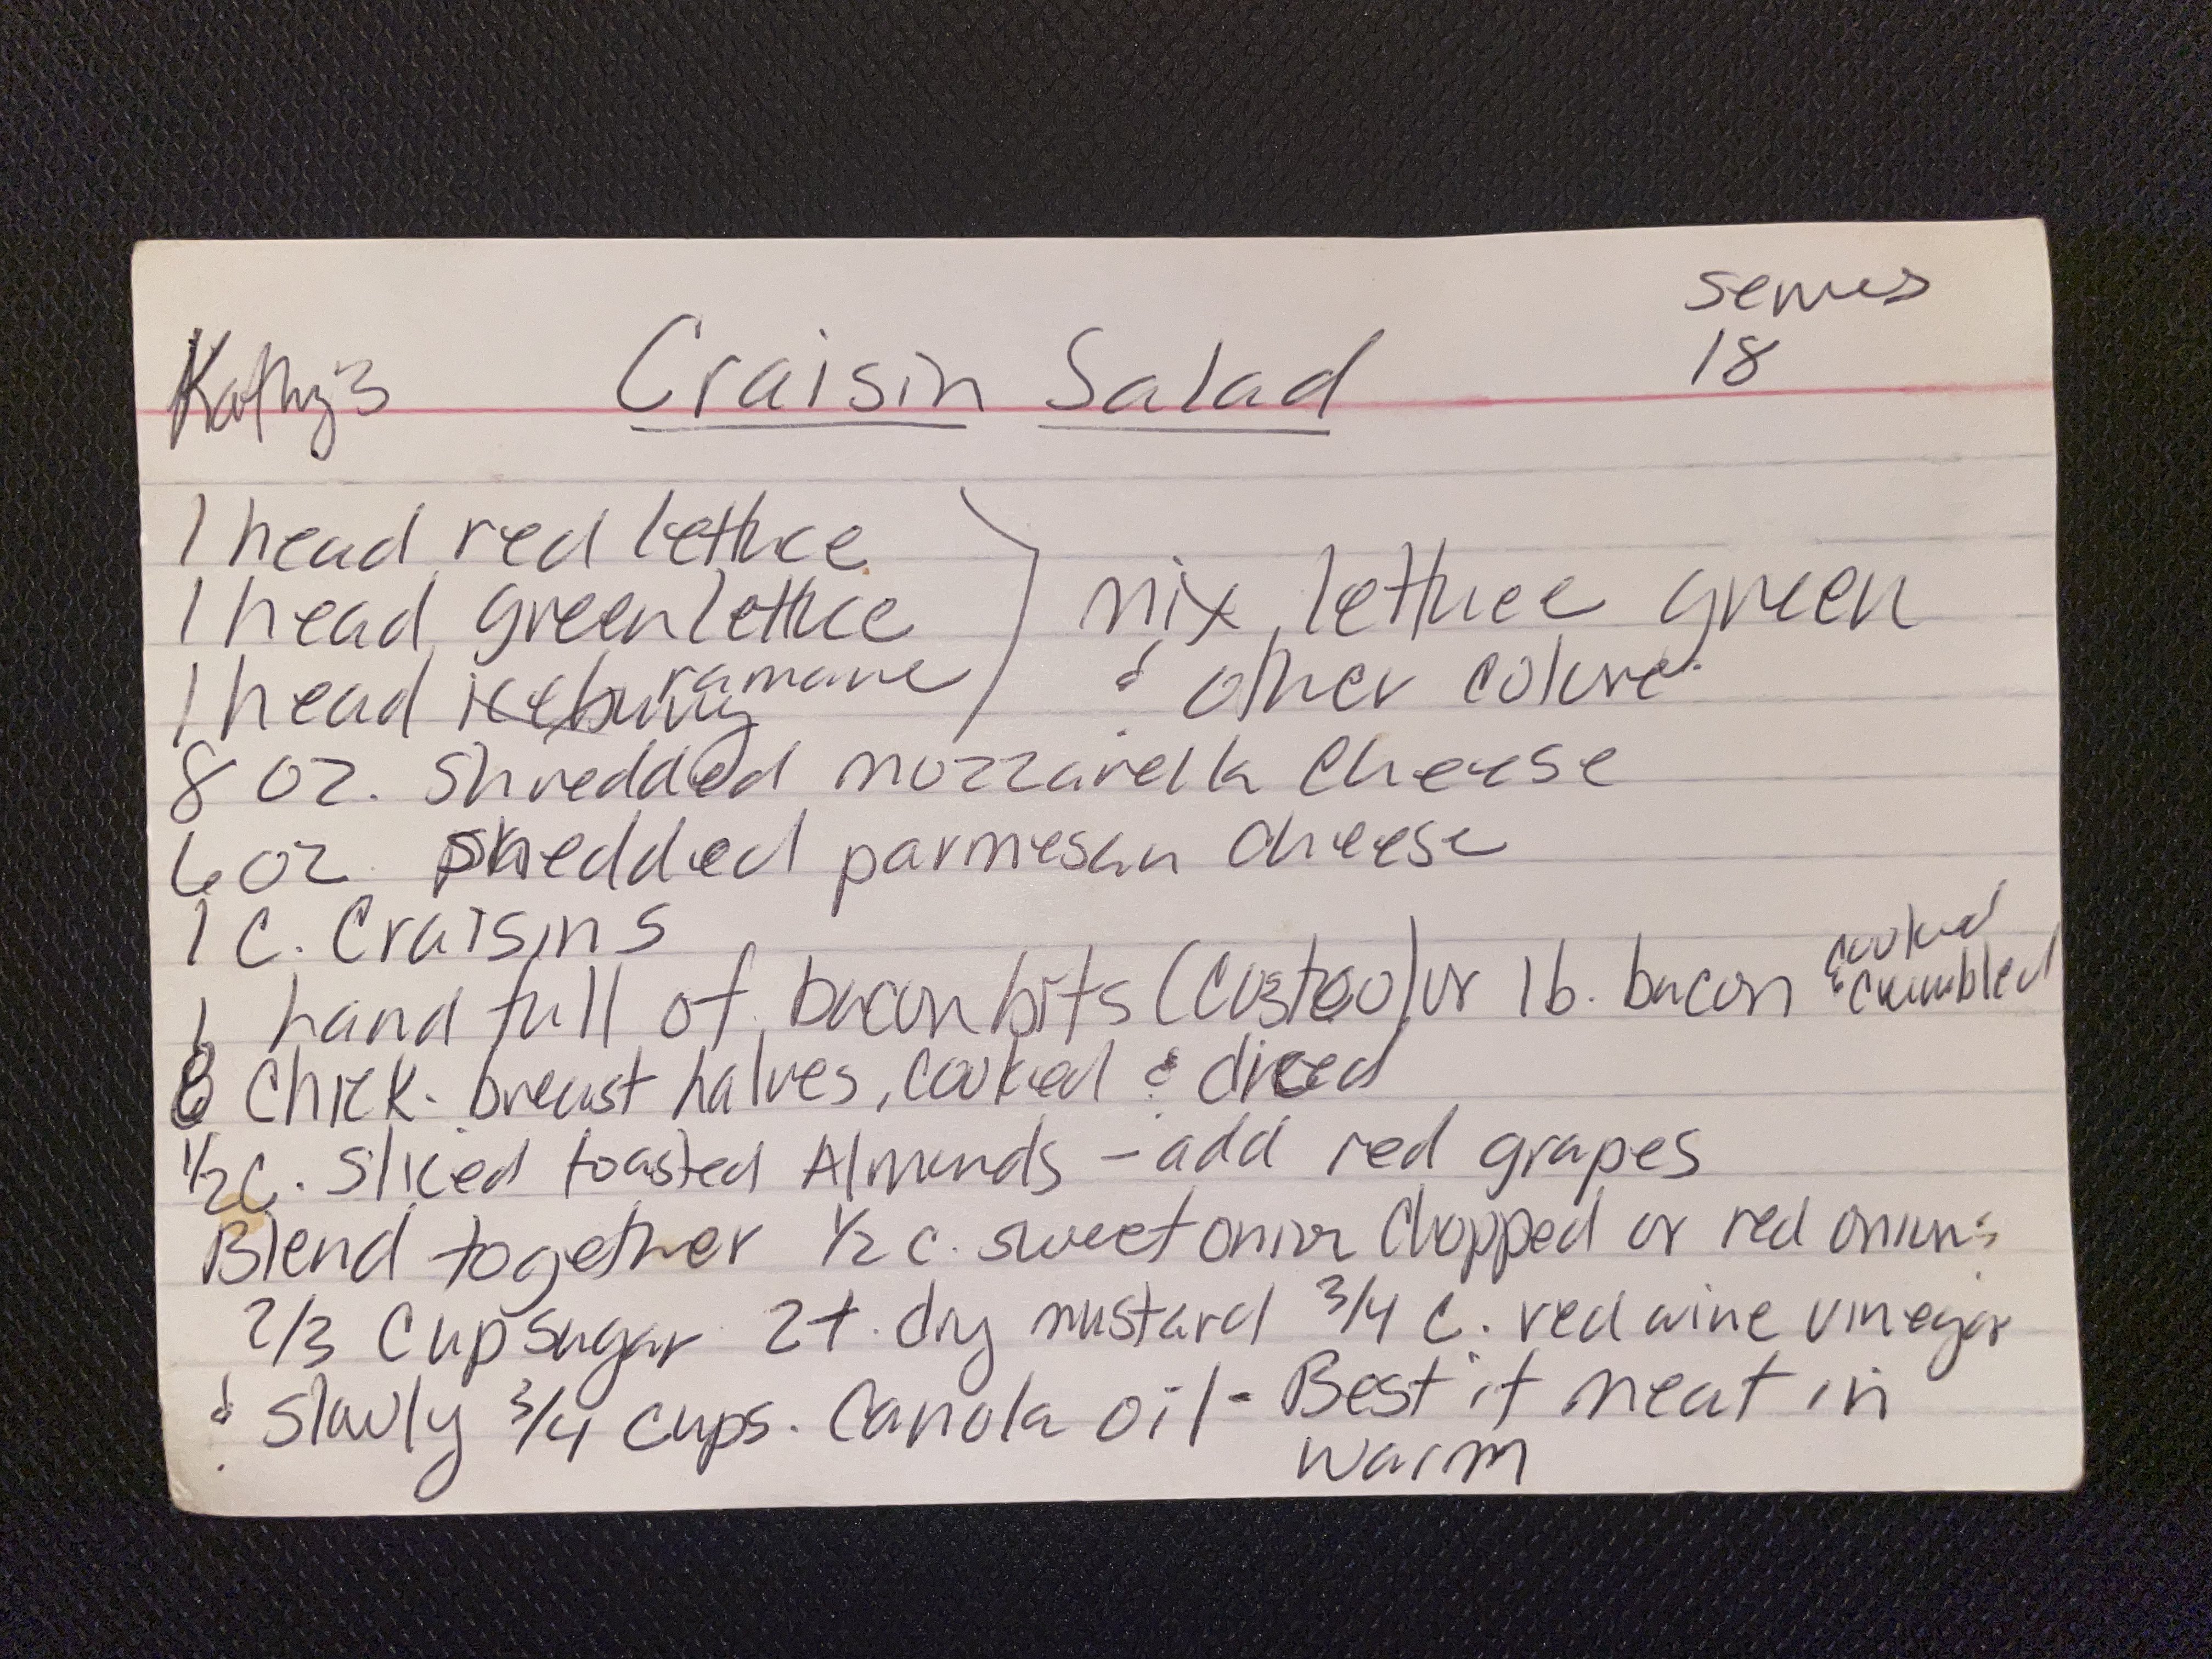 serves
18
Kathy's Craisin Salad
1 head red lettuce
1 head green lettuce
1 head ramane
mix lettuce green
& other colure
8 oz. shredded mozzarella cheese
6 oz shredded parmesan cheese
1 c. Craisins
1 hand full of bacon bits (Costco) or 1 lb. bacon cooked & crumbled
8 Chick. breast halves, cooked & diced
1/2 c. sliced toasted Almonds - add red grapes
Blend together 1/2 c. sweet onion Chopped or red onions
2/3 cup sugar 2 t. dry mustard 3/4 c. red wine vinegar
& slowly 3/4 cups. Canola oil - Best if meat in
warm